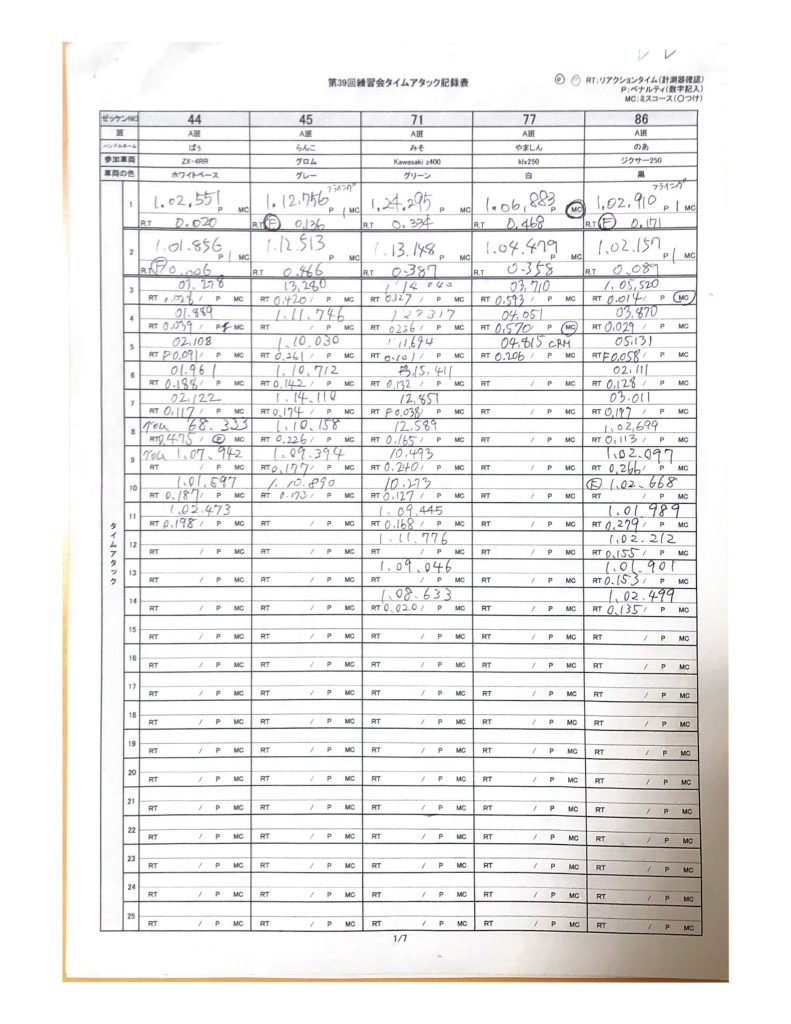 第39回練習会タイムアタック記録表
Ⓟ RT:リアクションタイム(計測器確認)
P:ペナルティ(数字記入)
MC:ミスコース(〇つけ)
ゼッケンNO 44 45 71 77 86
班 A班 A班 A班 A班 A班
ハンドルネーム ぱぅ らんこ みそ やましん のあ
参加車両 ZX-4RR グロム Kawasaki z400 klx250 ジクサー250
車両の色 ホワイトベース グレー グリーン 白 黒
タイムアタック
フライング フライング
1 1.02,551 P MC 1.12.756 P 1 MC 1.24.295 P MC 1.06,883 P MC 1.02.910 P 1 MC
R.T 0.020 R.T F 0.136 R.T 0.334 R.T 0.468 R.T F 0.171
2 1.01.856 P 1 MC 1.12.513 P MC 1.13.148 P MC 1.04.479 P MC 1.02.157 P 1 MC
R.T F 0.006 R.T 0.466 R.T 0.387 R.T 0.358 R.T 0.089
3 01.278 13.280 1.14.040 03.710 1.05,520
RT 0.028 / P MC RT 0.420 / P MC RT 0327 / P MC RT 0.593 / P MC RT 0.014 / P MC
4 01.889 1.11.746 04.051 03.870
RT 0.039 / P MC RT / P MC RT 0236 / P MC RT 0.570 / P MC RT 0.029 / P MC
5 02.108 1.10.030 1.11.694 04.815 CRM 05.131
RT F0.091 / P MC RT 0.261 / P MC RT 0.101 / P MC RT 0.206 / P MC RT F0.058 / P MC
6 01.961 1.10.712 15.411 02.111
RT 0.188 / P MC RT 0.142 / P MC RT 0.132 / P MC RT / P MC RT 0.128 / P MC
7 02.122 1.14.110 12.851 03.011
RT 0.117 / P MC RT 0.174 / P MC RT F0.038 / P MC RT / P MC RT 0.197 / P MC
8 68.333 1.10.158 12.589 1.02,699
RT 0.475 / P MC RT 0.226 / P MC RT 0.165 / P MC RT / P MC RT 0.113 / P MC
9 1.07.942 1.09.394 10.493 1.02.097
RT / P MC RT 0.177 / P MC RT 0.240 / P MC RT / P MC RT 0.266 / P MC
10 1.01.697 1.10.890 10.273 F 1.02.668
RT 0.187 / P MC RT 0.173 / P MC RT 0.127 / P MC RT / P MC RT / P MC
11 1.02.473 1.09.445 1.01.989
RT 0.198 / P MC RT / P MC RT 0.168 / P MC RT / P MC RT 0.279 / P MC
12 1.11.776 1.02.212
RT / P MC RT / P MC RT / P MC RT / P MC RT 0.155 / P MC
13 1.09.046 1.01.901
RT / P MC RT / P MC RT / P MC RT / P MC RT 0.153 / P MC
14 1.08.633 1.02.499
RT / P MC RT / P MC RT 0.020 / P MC RT / P MC RT 0.135 / P MC
15
RT / P MC RT / P MC RT / P MC RT / P MC RT / P MC
16
RT / P MC RT / P MC RT / P MC RT / P MC RT / P MC
17
RT / P MC RT / P MC RT / P MC RT / P MC RT / P MC
18
RT / P MC RT / P MC RT / P MC RT / P MC RT / P MC
19
RT / P MC RT / P MC RT / P MC RT / P MC RT / P MC
20
RT / P MC RT / P MC RT / P MC RT / P MC RT / P MC
21
RT / P MC RT / P MC RT / P MC RT / P MC RT / P MC
22
RT / P MC RT / P MC RT / P MC RT / P MC RT / P MC
23
RT / P MC RT / P MC RT / P MC RT / P MC RT / P MC
24
RT / P MC RT / P MC RT / P MC RT / P MC RT / P MC
25
RT / P MC RT / P MC RT / P MC RT / P MC RT / P MC
1/7